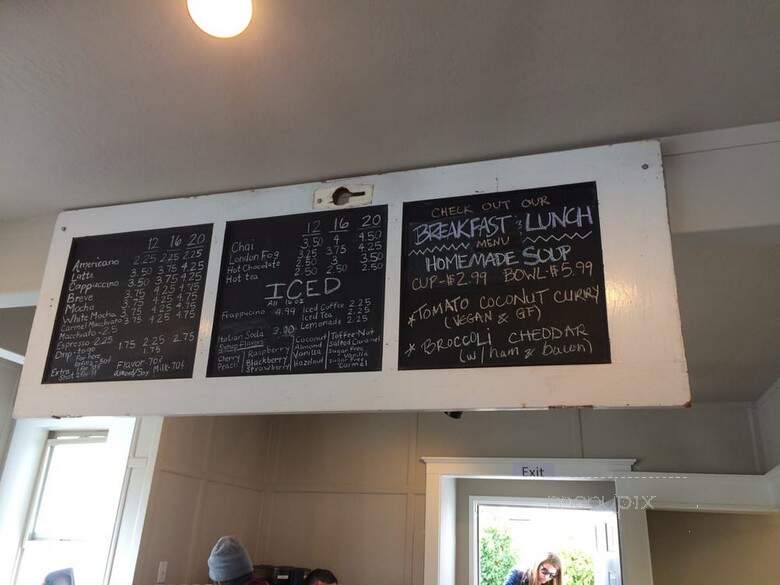 12 16 20
Americano 2.25 2.25 2.25
Latte 3.50 3.75 4.25
Cappuccino 3.50 3.75 4.25
Breve
Mocha
White Mocha
Carmel Macchiato 3.75 4.25 4.75
Macchiato 2.25
Espresso 2.25
Drip 1.75 2.25 2.75
Extra
Flavor .70
almond/soy Milk .70
12 16 20
Chai 3.50 4 4.50
London Fog 3.25 3.75 4.25
Hot Chocolate 2.50 3 3.50
Hot tea 2.50 2.50 2.50
ICED
All 16 oz
Frappucino 4.99
Iced Coffee 2.25
Iced Tea 2.25
Lemonade 2.25
Italian Soda 3.00
Syrup Flavors
Cherry
Peach
Raspberry
Blackberry
Strawberry
Coconut
Almond
Vanilla
Hazelnut
Toffee-Nut
Salted Caramel
Sugar Free
Vanilla
Sugar Free
Carmel
CHECK OUT OUR
BREAKFAST & LUNCH
MENU
HOMEMADE SOUP
CUP-$2.99 BOWL-$5.99
*TOMATO COCONUT CURRY
(VEGAN & GF)
* BROCCOLI CHEDDAR
(w/ham & bacon)
Exit